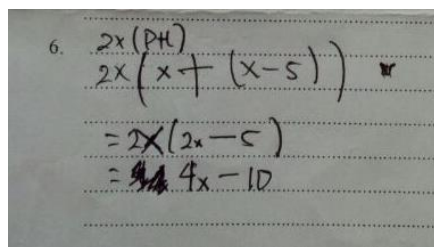 6. 2x(P+L)
2x(x+(x-5))
=2x(2x-5)
= 4x-10